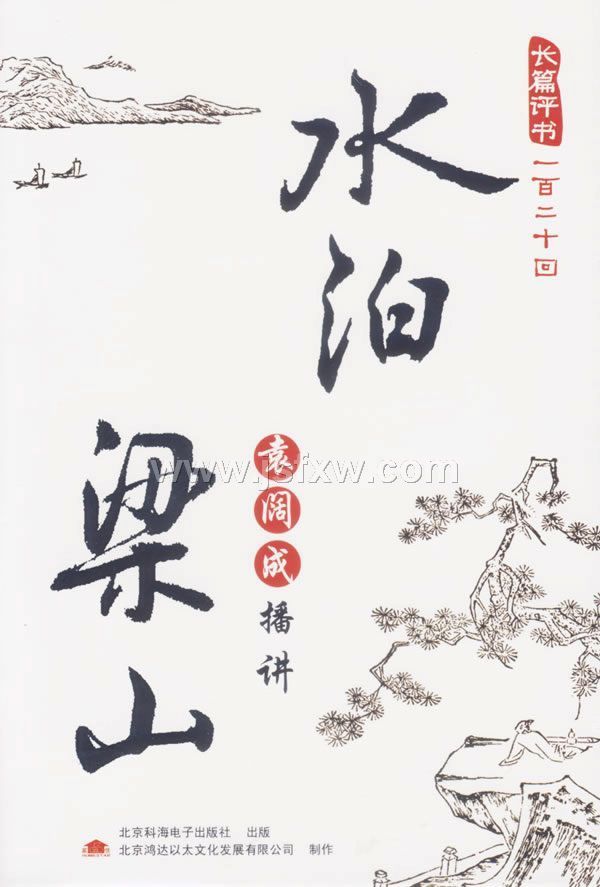 长篇评书
一百二十回
水泊
梁山
袁阔成
播讲
www.jsfxw.com
北京科海电子出版社 出版
北京鸿达以太文化发展有限公司 制作